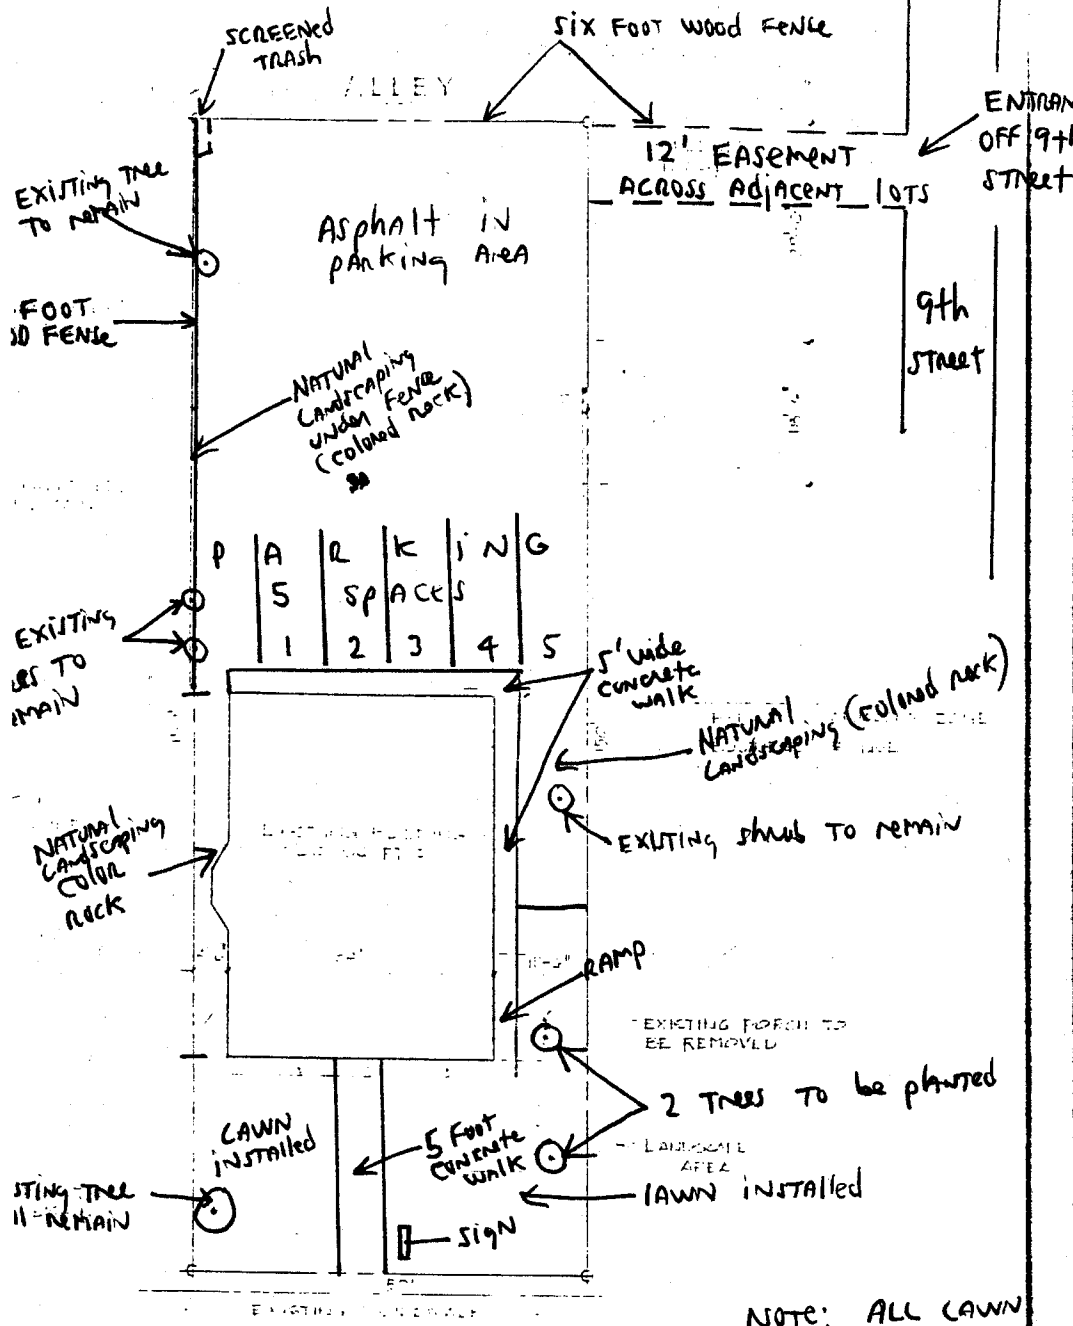 SCREENED
TRASH
SIX FOOT WOOD FENCE
ALLEY
ENTRAN
OFF 9th
STREET
12' EASEMENT
ACROSS ADJACENT LOTS
EXISTING TREE
TO REMAIN
Asphalt in
PARKING AREA
FOOT
FENSE
9th
STREET
NATURAL
LANDSCAPING
UNDER FENCE
(COLORED ROCK)
P A R K I N G
5 SPACES
1 2 3 4 5
EXISTING
ES TO
EMAIN
5' WIDE
CONCRETE
WALK
NATURAL
LANDSCAPING (COLORED ROCK)
EXISTING BUILDING
NATURAL
LANDSCAPING
COLOR
ROCK
EXISTING Shrub TO REMAIN
RAMP
EXISTING PORCH TO
BE REMOVED
2 TREES TO be plANTED
LAWN
INSTALLED
5 FOOT
CONCRETE
WALK
LANDSCAPE
AREA
LAWN INSTALLED
STING TREE
ll REMAIN
SIGN
EXISTING SIDEWALK
NOTE: ALL LAWN